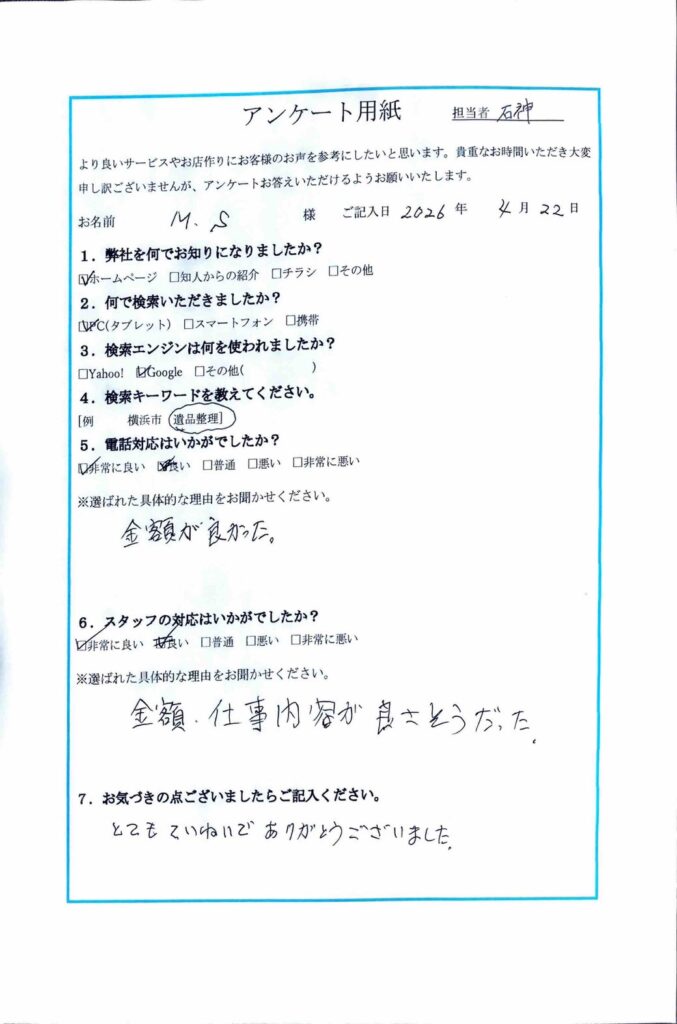 アンケート用紙
担当者 石神
より良いサービスやお店作りにお客様のお声を参考にしたいと思います。貴重なお時間いただき大変
申し訳ございませんが、アンケートお答えいただけるようお願いいたします。
お名前 M.S 様 ご記入日 2026 年 4 月 22 日
1．弊社を何でお知りになりましたか？
☑ホームページ □知人からの紹介 □チラシ □その他
2．何で検索いただきましたか？
☑PC(タブレット) □スマートフォン □携帯
3．検索エンジンは何を使われましたか？
□Yahoo! ☑Google □その他( )
4．検索キーワードを教えてください。
[例 横浜市 遺品整理]
5．電話対応はいかがでしたか？
☑非常に良い ☑良い □普通 □悪い □非常に悪い
※選ばれた具体的な理由をお聞かせください。
金額が良かった。
6．スタッフの対応はいかがでしたか？
☑非常に良い ☑良い □普通 □悪い □非常に悪い
※選ばれた具体的な理由をお聞かせください。
金額、仕事内容が良さそうだった。
7．お気づきの点ございましたらご記入ください。
とてもていねいで ありがとうございました。